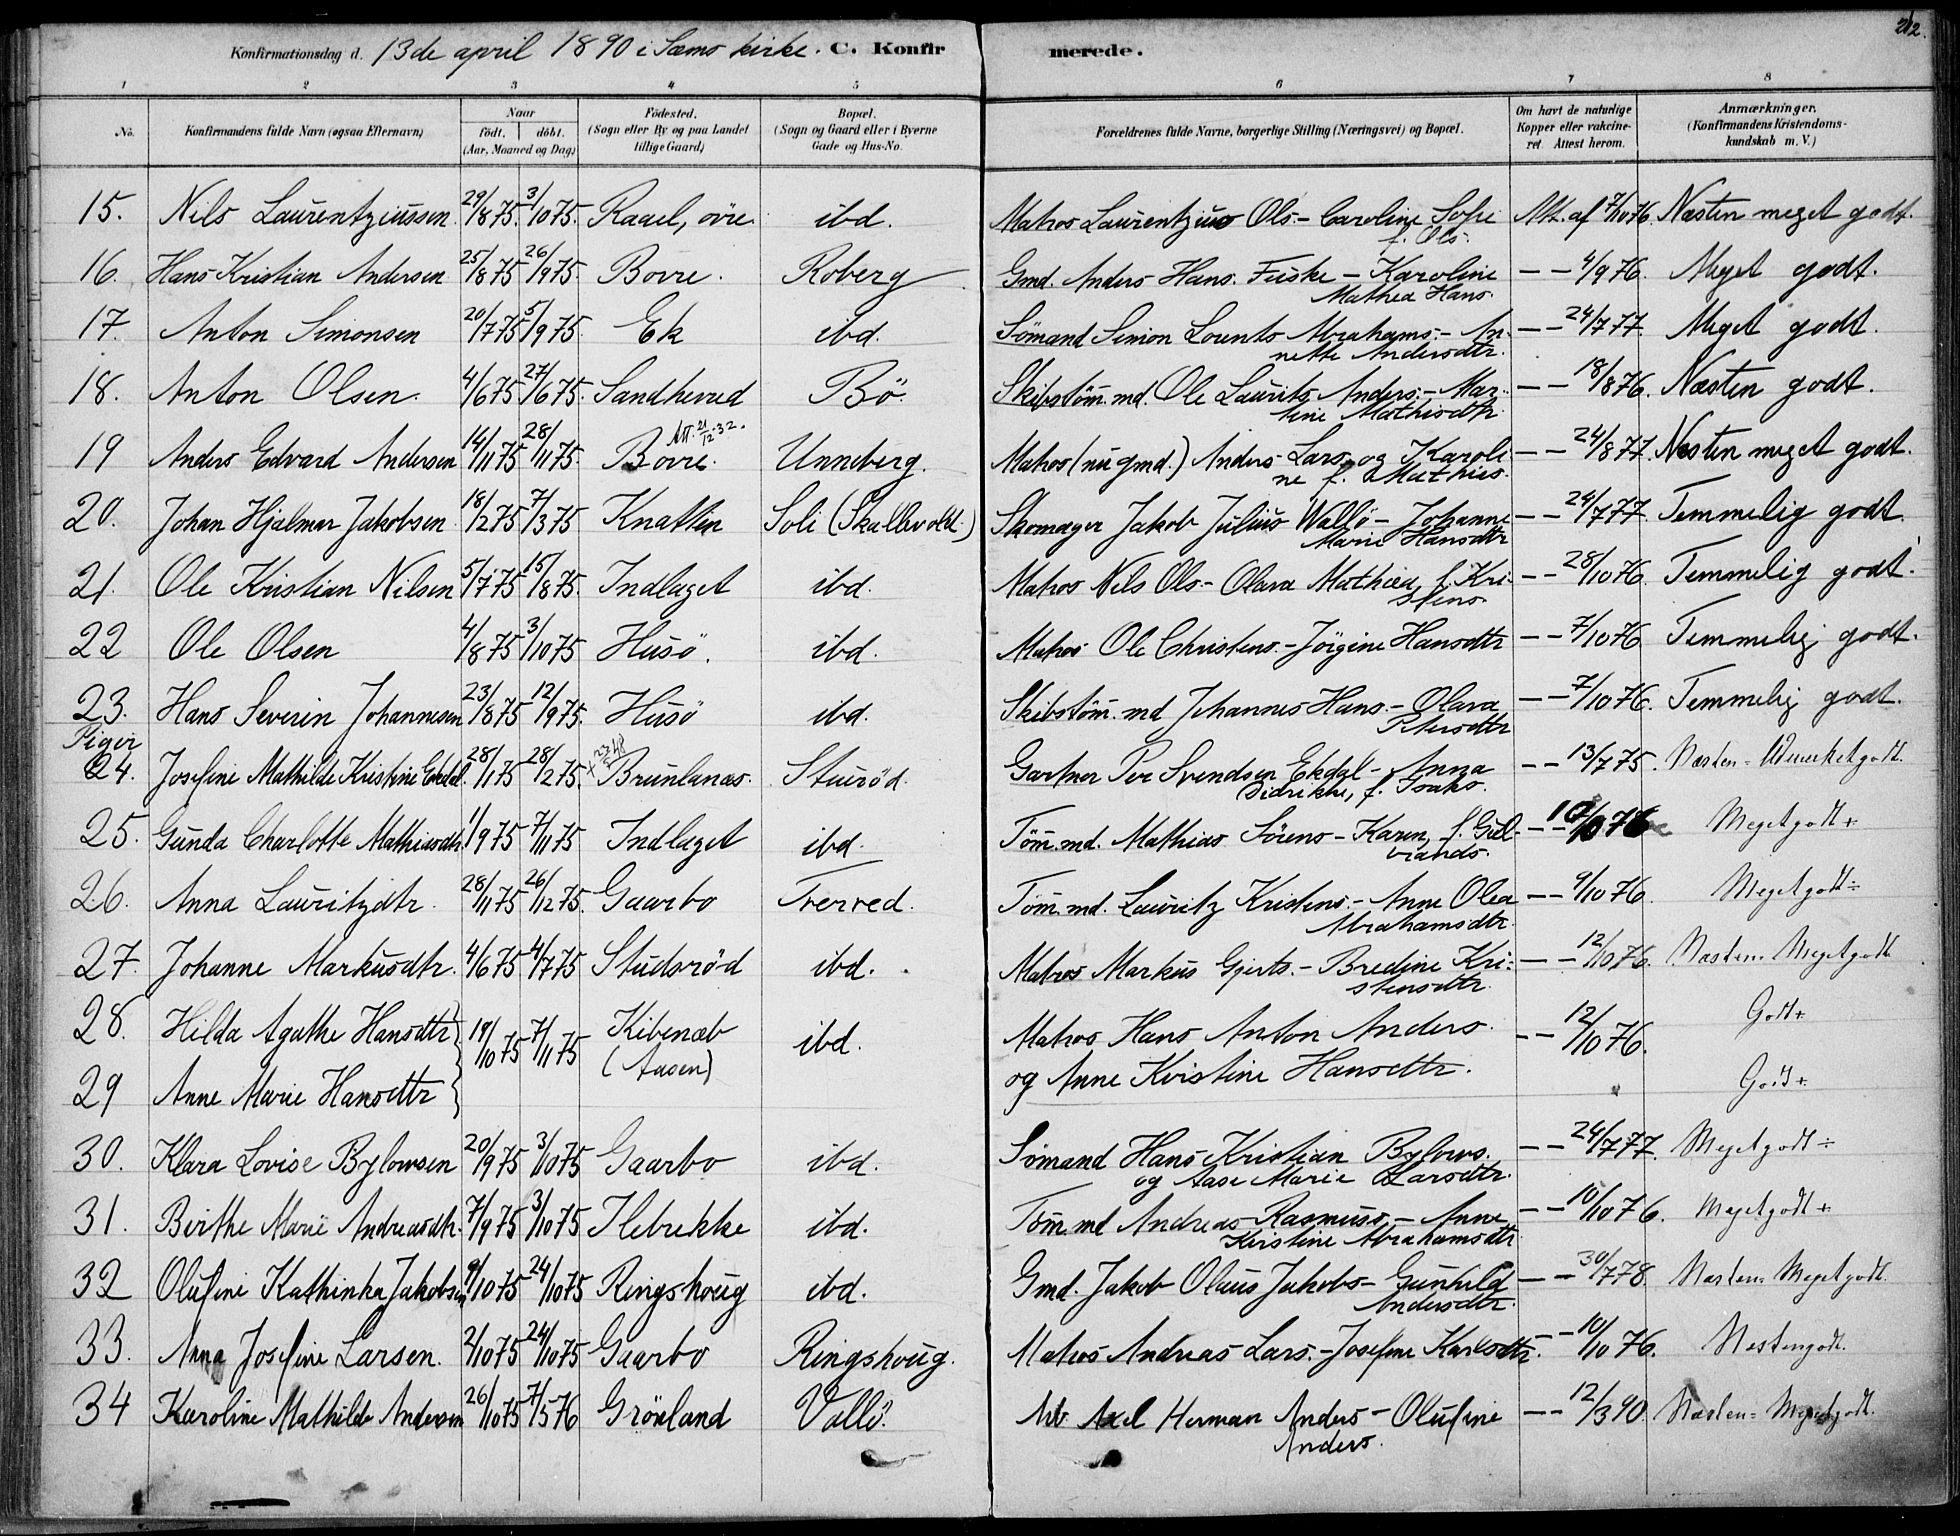 212.
Konfirmationsdag d. 13de april 1890 i Sems kirke. C. Konfirmerede.
1 2 3 4 5 6 7 8
No. Konfirmandens fulde Navn (ogsaa Efternavn) Naar födt. döbt. (Aar, Maaned og Dag) Födested. (Sogn eller By og paa Landet tillige Gaard) Bopæl. (Sogn og Gaard eller i Byerne Gade og Hus-No. Forældrenes fulde Navne, borgerlige Stilling (Næringsvei) og Bopæl. Om havt de naturlige Kopper eller vakcineret Attest herom. Anmærkninger. (Konfirmandens Kristendomskundskab m. V.)
15. Nils Laurentziussen 29/8 75. 3/10 75. Raael, övre. ibd. Matros Laurentzius Ols.- Caroline Sofie f. Ols. Att. af 7/10 76. Næsten meget godt.
16. Hans Kristian Andersen 25/8 75 26/9 75. Bovre. Roberg Gmd. Anders Hans. Feiske - Karoline Mathea Hans. - - 4/9 76. Meget godt.
17. Anton Simonsen 20/7 75 5/9 75. Ek ibd. Sömand Simon Lorents Abrahams.- Annette Andersdtr. - - 24/7 77. Meget godt.
18. Anton Olsen. 4/6 75 27/6 75. Sandherred Bö. Skibstöm.md. Ole Laurits Anders.- Martine Mathisdtr. - - 18/8 76. Næsten godt.
19 Anders Edvard Andersen 14/11 75. 28/11 75. Att. 21/12-32. Bovre. Unneberg. Matros (nu gmd.) Anders Lars. og Karoline f. Mathias. - - 24/8 77. Næsten meget godt.
20. Johan Hjalmar Jakobsen 18/2 75 7/3 75 Knatten Soli (Skallevold.) Skomager Jakob Julius Wallö - Johanne Marie Hansdtr - - 24/7 77. Temmelig godt.
21. Ole Kristian Nilsen 5/7 75 15/8 75. Indlaget ibd. Matros Nils Ols - Olava Mathea, f. Kristens. - - 28/10 76. Temmelig godt.
22 Ole Olsen 4/8 75 3/10 75 Husö. ibd. Matros Ole Christens.- Jörgine Hansdtr - - 7/10 76. Temmelig godt.
23. Hans Severin Johannesen 23/8 75 12/9 75. Husö ibd. Skibstöm.md Johannes Hans.- Olava Petersdtr - - 7/10 76. Temmelig godt.
Piger
24. Josefine Mathilde Kristine Ekdal. 28/1 75 28/2 75. Brunlanæs. Sturöd. Gartner Per Svendsen Ekdal - Anna Didrikke, f. Isaks. - - 13/7 75. Næsten = Udmerketgodt.
25. Gunda Charlotte Mathiasdtr. 1/9 75 7/11 75 Indlaget ibd. Töm.md. Mathias Sörens - Karen, f. Gulbrands. - - 10/10 76 Megetgodt +
26. Anna Lauritzdtr. 28/11 75 26/12 75. Gaarbo Treröd. Töm.md. Lauritz Kristens.- Anne Olea Abrahamsdtr. - - 9/10 76. Megetgodt ÷
27. Johanne Markusdtr. 4/6 75 4/7 75 Studsröd ibd. Matros Markus Gjerts.- Bredine Kristensdtr. - - 12/10 76. Næsten= Megetgodt.
28. Hilda Agathe Hansdtr 19/10 75 7/11 75 Kibenæb (Aasen) ibd. Matros Hans Anton Anders. - - 12/10 76. Godt +
29 Anne Marie Hansdtr og Anne Kristine Hansdtr. Godt +
30. Klara Lovise Bylowsen 20/9 75 3/10 75 Gaarbo ibd. Sömand Hans Kristian Bylows. og Aase Marie Larsdtr. - - 24/7 77. Megetgodt ÷
31. Birthe Marie Andreasdtr. 7/9 75 3/10 75 Ilebrekke ibd. Töm.md Andreas Rasmuss.- Anne Kirstine Abrahamsdtr. - - 10/10 76. Megetgodt +
32 Olufine Kathinka Jakobsen 9/10 75 24/10 75 Ringshoug ibd. Gmd. Jakob Olaus Jakobs - Gunhild Andersdtr. - - 30/7 78. Næsten= Megetgodt.
33. Anna Josefine Larsen. 2/10 75 24/10 75 Gaarbo Ringshoug. Matros Andreas Lars.- Josefine Karlsdtr. - - 10/10 76. Næstengodt.
34 Karoline Mathilde Andersen 26/10 75 7/5 76 Grönland Vallö. Arb. Axel Herman Anders - Olufine Anders. - - 12/3 90. Næsten= Megetgodt.